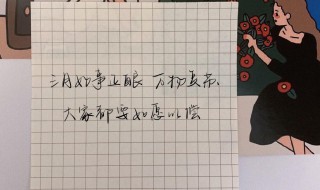 三月好事正酿 万物复苏、
大家都要如愿以偿